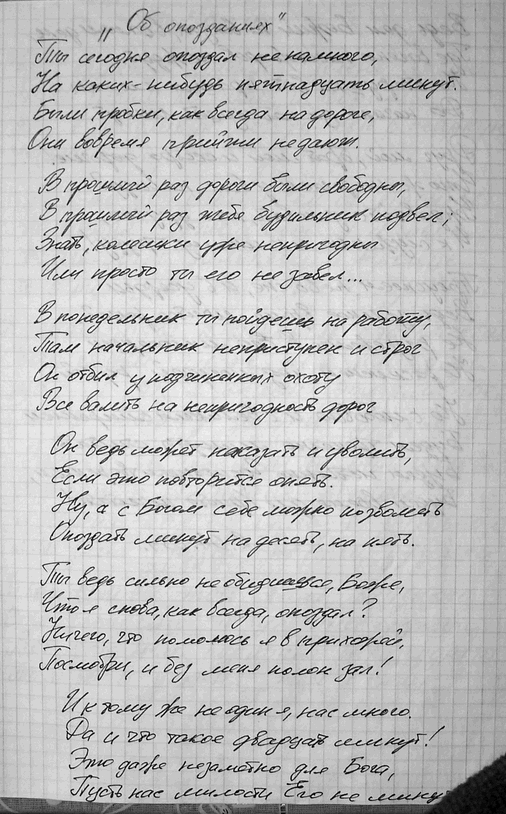 „Об опозданиях"
Ты сегодня опоздал не намного,
На каких-нибудь пятнадцать минут.
Были пробки, как всегда на дороге,
Они вовремя прийти не дают.
В прошлый раз дороги были свободны,
В прошлый раз тебя будильник подвел;
Знать, колесики уже непригодны
Или просто ты его не завел...
В понедельник ты пойдешь на работу,
Там начальник неприступен и строг
Он отбил у подчиненных охоту
Все валить на непригодность дорог
Он ведь может наказать и уволить,
Если это повторится опять.
Ну, а с Богом себе можно позволить
Опоздать минут на десять, на пять.
Ты ведь сильно не обидишься, Боже,
Что я снова, как всегда, опоздал?
Ничего, что помолюсь я в прихожей,
Посмотри, и без меня полон зал!
И к тому же не один я, нас много.
Да и что такое двадцать минут!
Это даже незаметно для Бога,
Пусть нас милости Его не минут